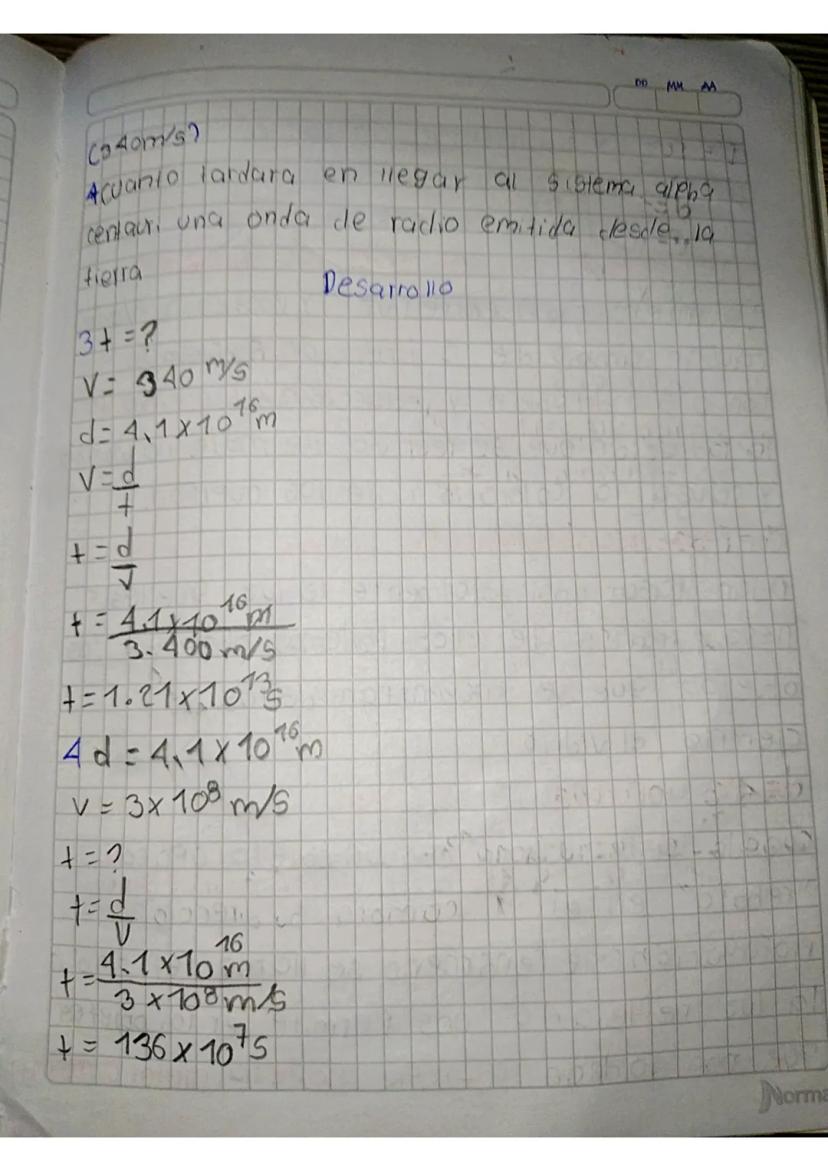 DD MM AA
(340m/s?
4 cuanto tardara en llegar al sistema alpha
centauri una onda de radio emitida desde la
tierra
Desarrollo
3 t = ?
V = 340 m/s
d = 4.1 x 10^16 m
V = d/t
t = d/v
t = 4.1 x 10^16 m / 3.400 m/s
t = 1.21 x 10^13 s
4 d = 4.1 x 10^16 m
v = 3 x 10^8 m/s
t = ?
t = d/v
t = 4.1 x 10^16 m / 3 x 10^8 m/s
t = 136 x 10^7 s
Norma